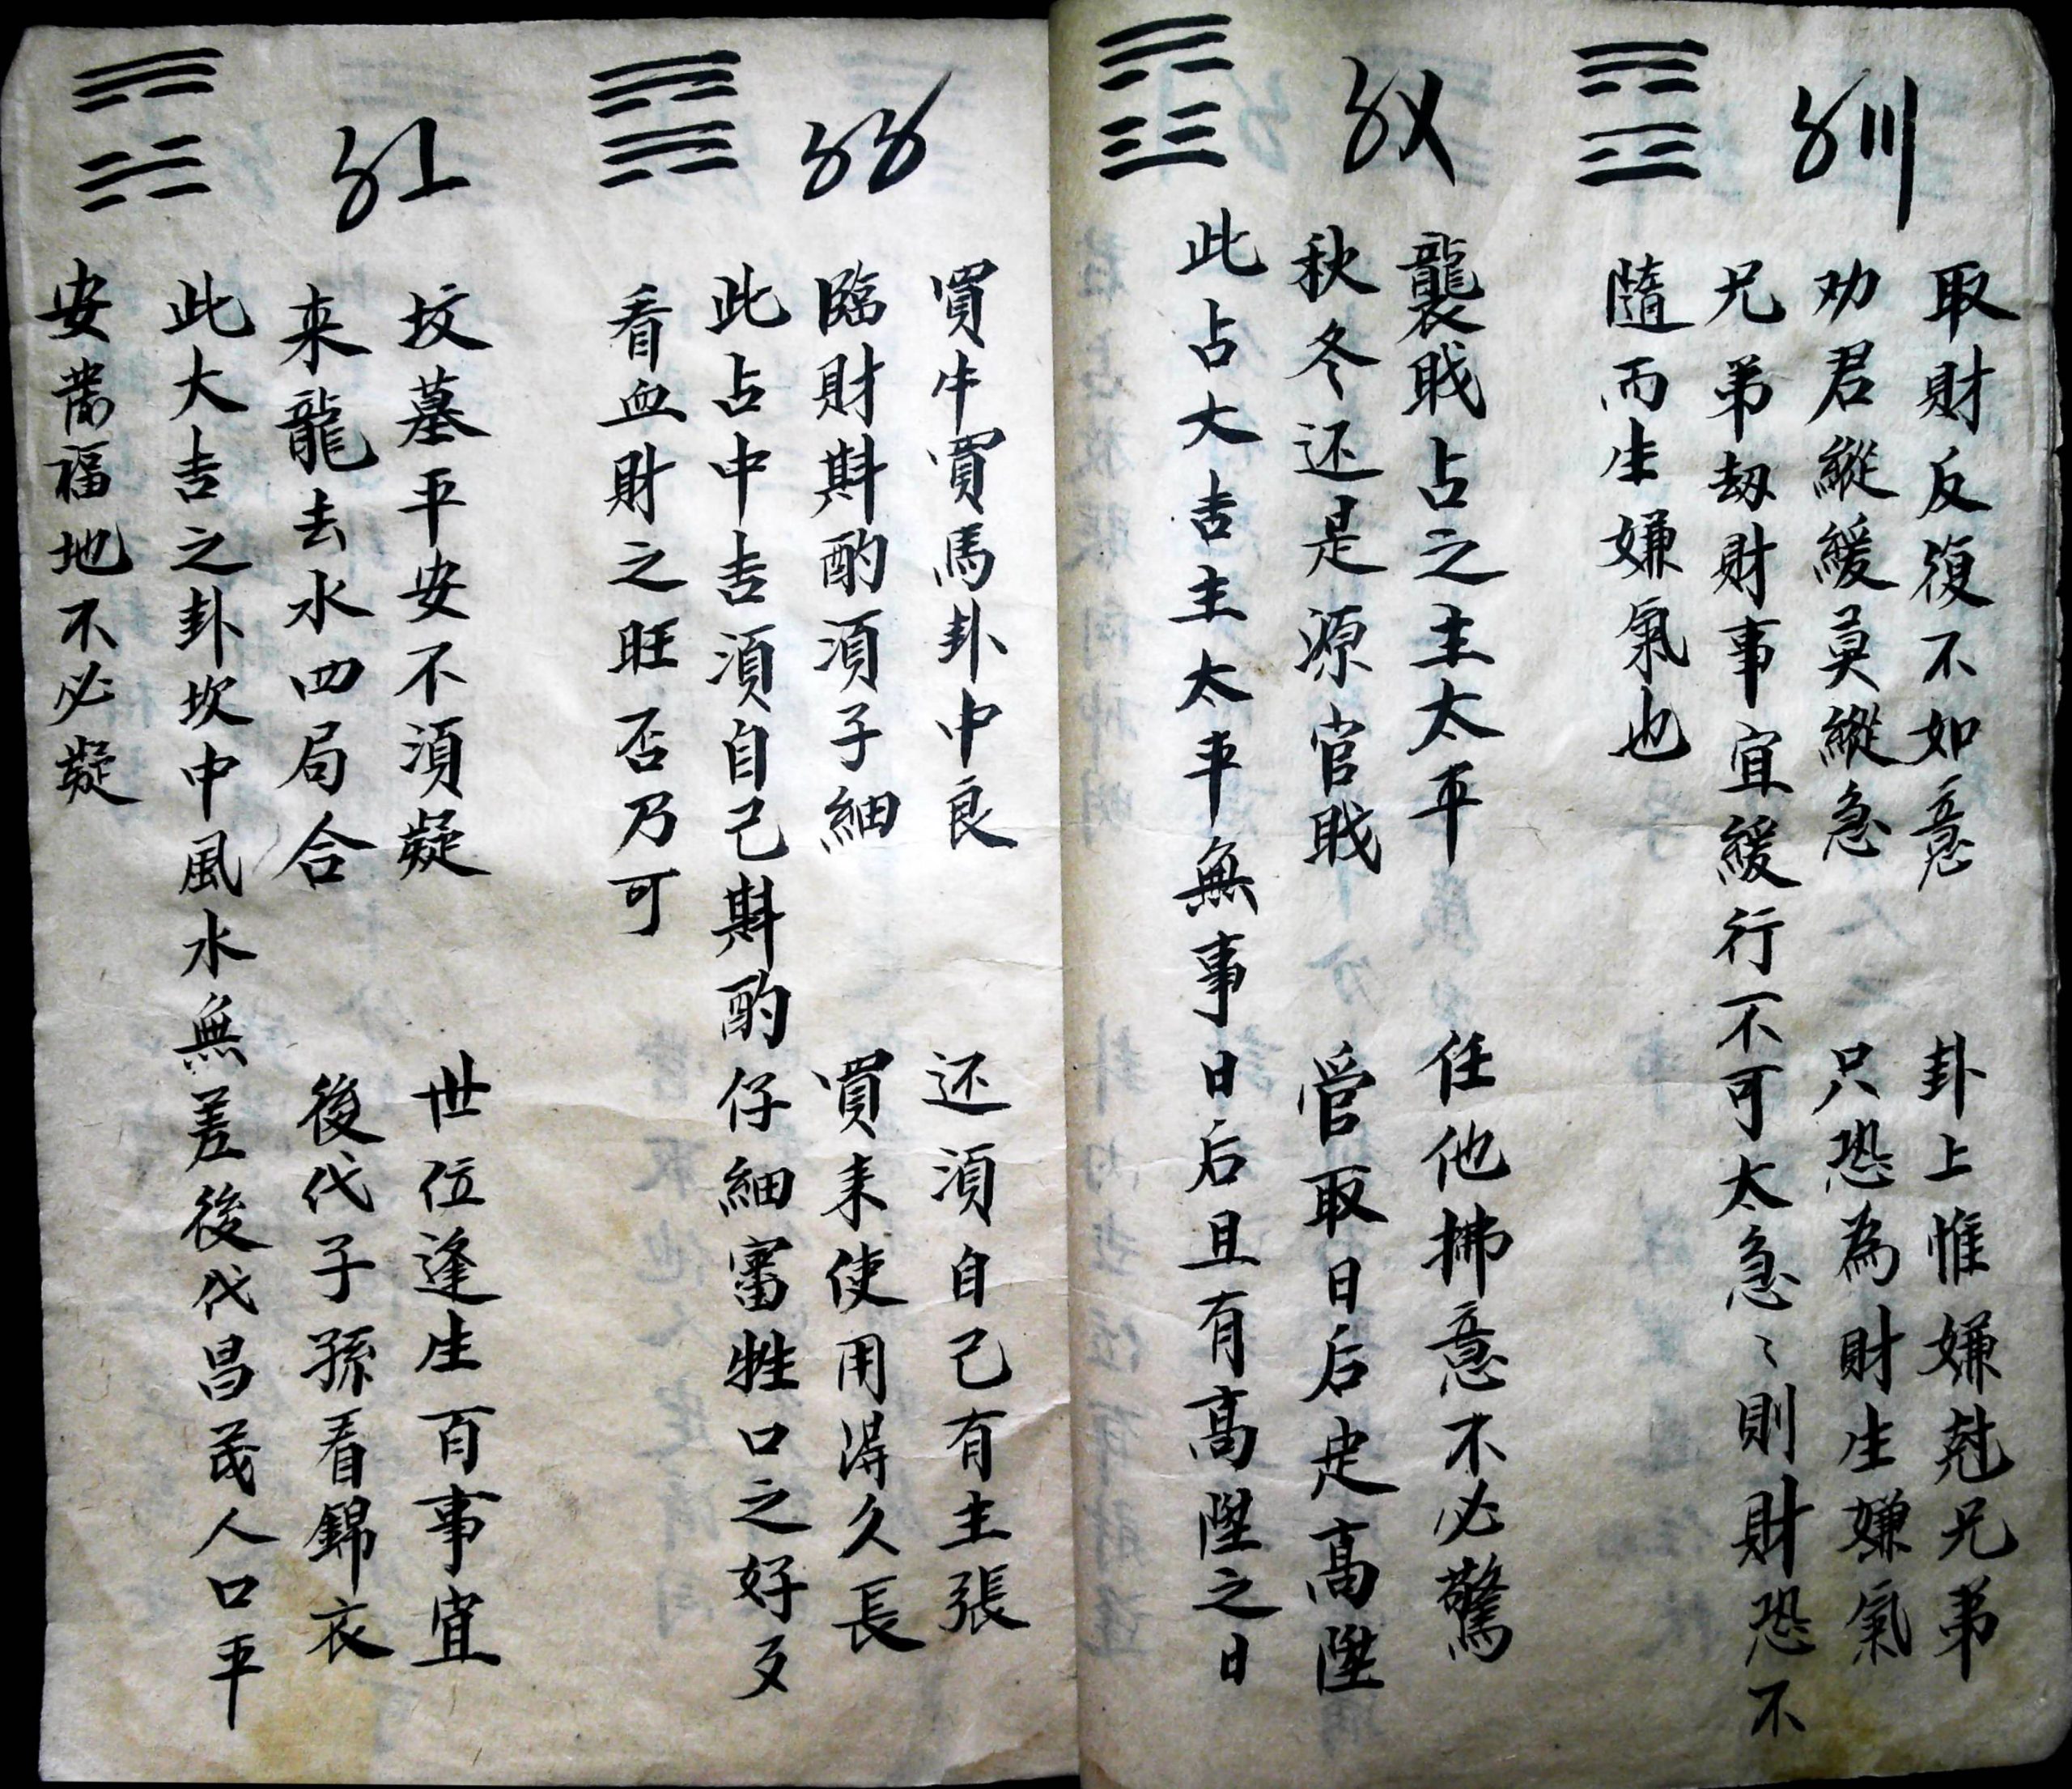 〥〣
取財反復不如意　卦上惟嫌尅兄弟
劝君縱緩莫縱急　只恐為財生嫌氣
兄弟劫財事宜緩行不可太急〻則財恐不
隨而生嫌氣也
〥〤
襲戝占之主太平　任他拂意不必驚
秋冬还是源官戝　管取日后走高陞
此占大吉主太平無事日后且有高陞之日
〥〥
買牛買馬卦中良　还須自己有主張
臨財斟酌須子細　買来使用得久長
此占中吉須自己斟酌仔細審牲口之好歹
看血財之旺否乃可
〥〦
坟墓平安不須疑　世位逢生百事宜
来龍去水四局合　後代子孫看錦衣
此大吉之卦坎中風水無差後代昌茂人口平
安葬福地不必疑